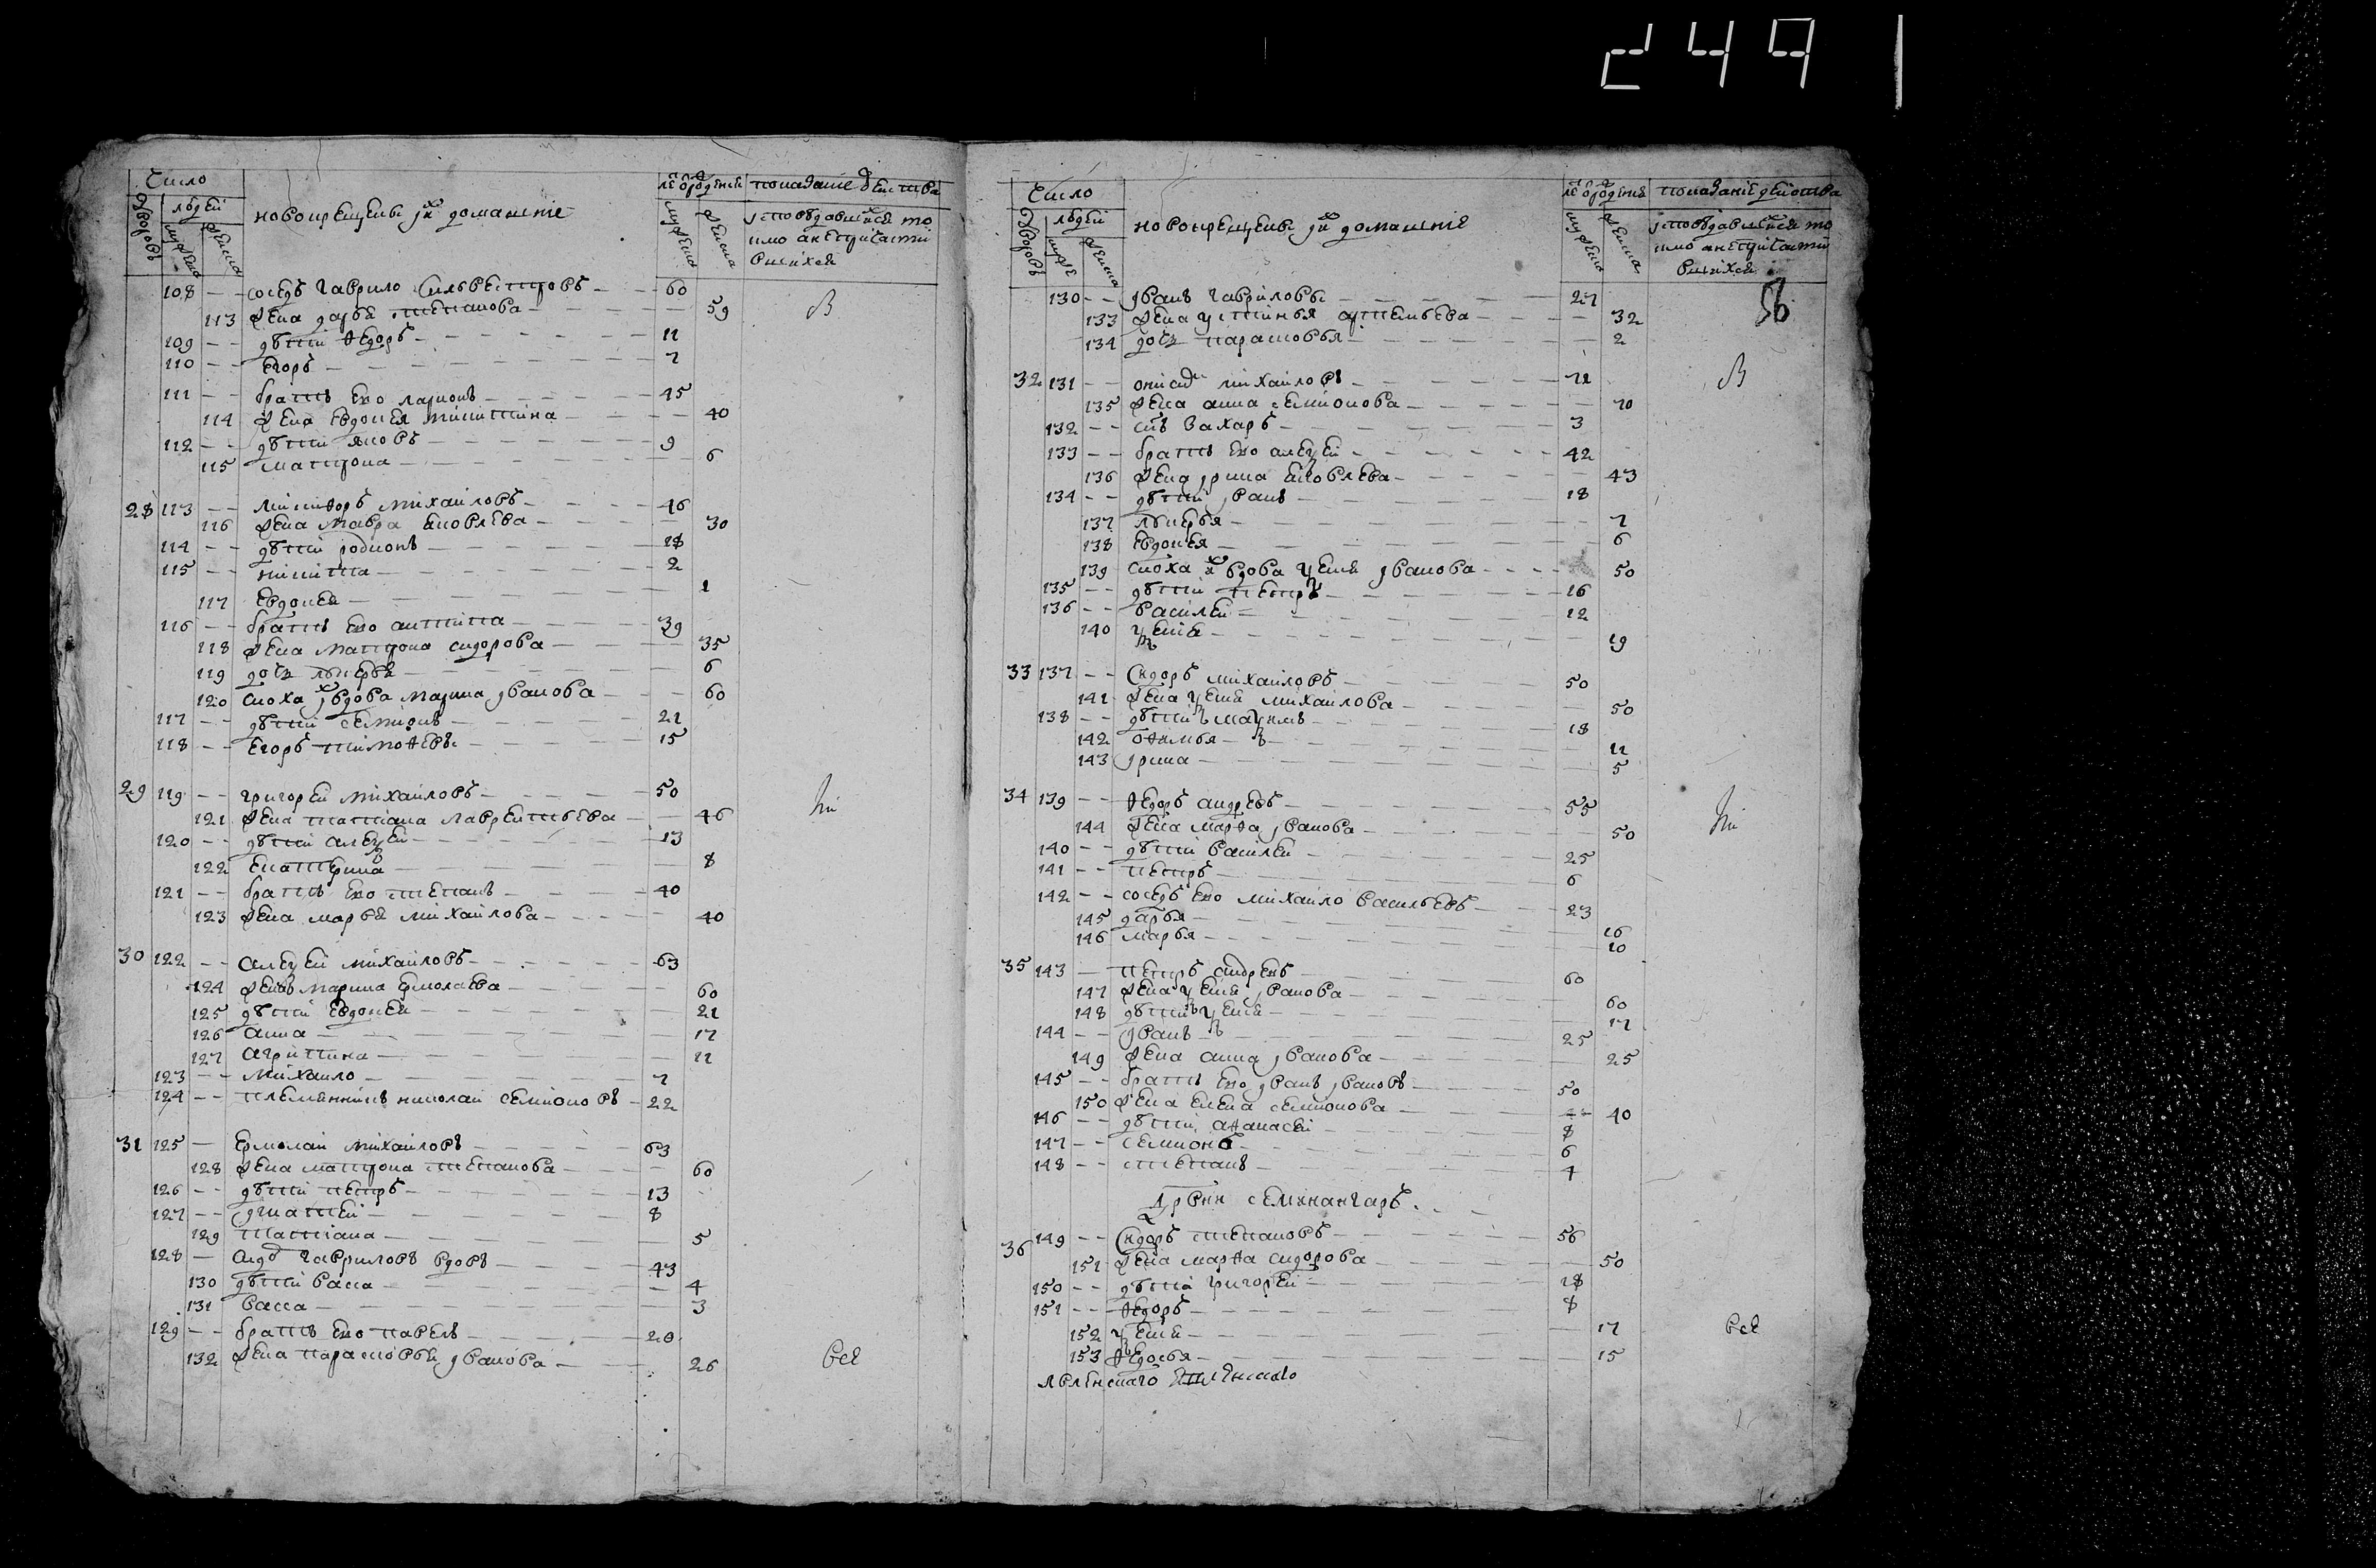 249
Число
дворовъ
людей
мужеска
женска
новокрещены ї ихъ домашнiе
лѣта от рожденiя
мужеска
женска
показанiе действа
исповѣдавшихся то
кмо а непричасти
вшихся
108 -- сосѣдъ гаврило сильвестровъ 60
113 жена дарья степанова 59 В
109 -- дѣти ѳедоръ 11
110 -- егоръ 7
111 -- братъ ево ларионъ 45
114 жена евдокея никитина 40
112 -- дѣти яковъ 9
115 матрона 6
28 113 -- никифоръ михаиловъ 46
116 жена мавра яковлева 30
114 -- дѣти родионъ 18
115 -- никита 2
117 евдокея 1
116 -- братъ ево антипа 39
118 жена матрона сидорова 35
119 дочь лукерья 6
120 сноха ихъ вдова марина иванова 60
117 -- дѣти семионъ 21
118 -- егоръ тимоѳевы 15
29 119 -- григореи михаиловъ 50
121 жена татiана лаврентьева 46 ни
120 -- дѣти алеѯеи 13
122 екатерина 8
121 -- братъ ево степанъ 40
123 жена марья михаилова 40
30 122 -- алеѯеи михаиловъ 63
124 жена марина ермолаева 60
125 дѣти евдокея 21
126 анна 17
127 агрипина 11
123 -- михаило 7
124 -- племянникъ николаи семионовъ 22
31 125 -- ермолаи михаиловъ 63
128 жена матрона степанова 60
126 -- дѣти петръ 13
127 -- игнатеи 8
129 татiана 5
128 -- гавриловъ вдовъ 43
130 дѣти васса 4
131 васса 3
129 -- братъ ево павелъ 20
132 жена парасковья иванова 26 все
Число
дворовъ
людей
муже
женска
новокрещены ї ихъ домашнiе
лѣта от рожденiя
мужеска
женска
показанiе действа
исповѣдавшихся то
кмо а непричасти
вшихся
56
130 -- иванъ гавриловъ 27
133 жена устинья артемьева 32
134 дочь парасковья 2
32 131 -- михаиловъ 71 В
135 жена анна семионова 70
132 -- снъ захаръ 3
133 -- братъ ево алеѯеи 42
136 жена ирина яковлева 43
134 -- дѣти иванъ 18
137 лукерья 7
138 евдокея 6
139 сноха ихъ вдова иванова 50
135 -- дѣти петръ 16
136 -- василеи 12
140 19
33 137 -- сидоръ михаиловъ 50
141 жена михаилова 50
138 -- дѣти 18
142 офимья 11
143 ирина 5
34 139 -- ѳедоръ андреевъ 55
144 жена марѳа иванова 50 ни
140 -- дѣти василеи 25
141 -- петръ 6
142 -- сосѣдъ ево михаило васильевъ 23
145 дарья 16
146 марья 10
35 143 -- петръ андреевъ 60
147 жена иванова 60
148 дѣти 17
144 -- иванъ 25
149 жена анна иванова 25
145 -- братъ ево иванъ ивановъ 50
150 жена елена семионова 40
146 -- дѣти аѳанасеи 8
147 -- семионъ 6
148 -- степанъ 4
дрвни семянангаръ
36 149 -- сидоръ степановъ 56
151 жена марѳа сидорова 50
150 -- дѣти григореи 18
151 -- ѳедоръ 8
152 17 все
153 ѳедосья 15